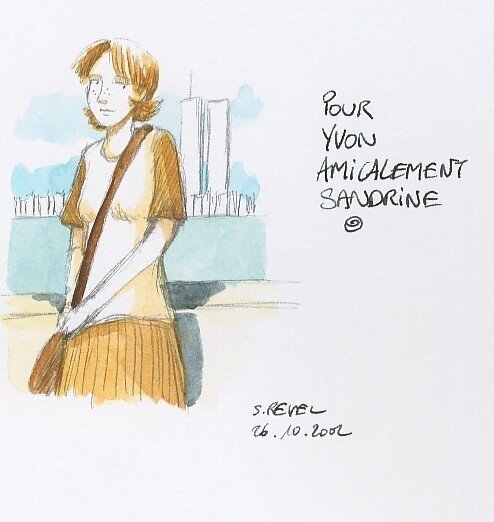 POUR
YVON
AMICALEMENT
SANDRINE
S. REVEL
26.10.2002